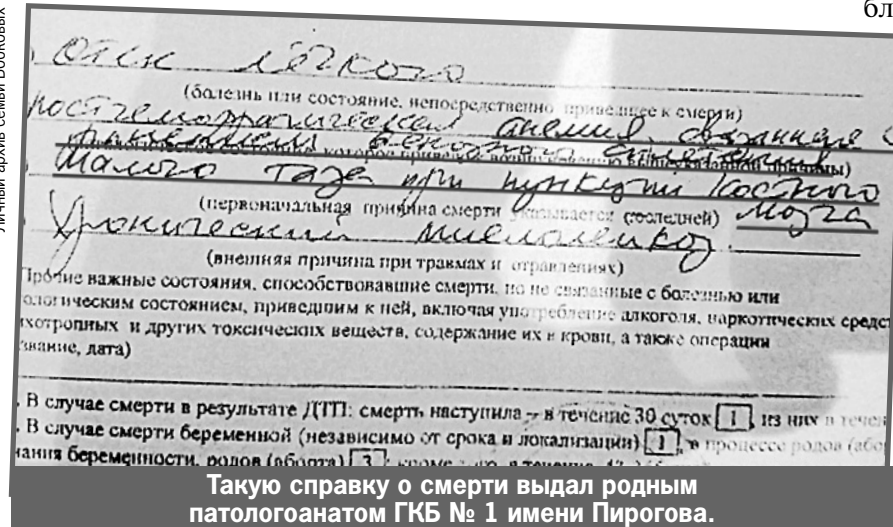 бл
Личный архив семьи Бобковых
Отек лёгкого
(болезнь или состояние, непосредственно приведшее к смерти)
постгеморрагическая анемия, связанная с
ранением венозного сплетения
малого таза при пункции костного
(первоначальная причина смерти указывается последней) мозга
Хронический миелолейкоз.
(внешняя причина при травмах и отравлениях)
Прочие важные состояния, способствовавшие смерти, но не связанные с болезнью или
ологическим состоянием, приведшим к ней, включая употребление алкоголя, наркотических средст
ихотропных и других токсических веществ, содержание их в крови, а также операции
звание, дата)
. В случае смерти в результате ДТП: смерть наступила – в течение 30 суток 1 , из них в течен
. В случае смерти беременной (независимо от срока и локализации) 1 , в процессе родов (або
чания беременности, родов (аборта) 3
Такую справку о смерти выдал родным
патологоанатом ГКБ № 1 имени Пирогова.